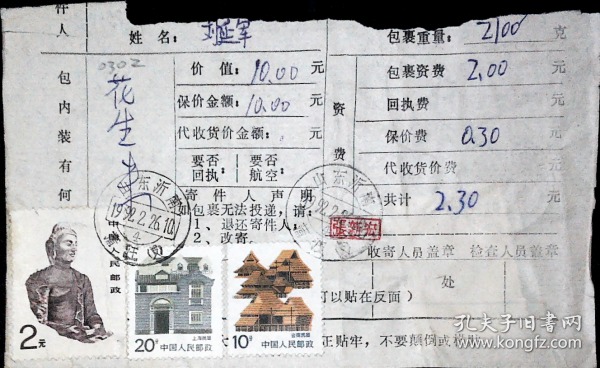 件人
姓名：
包裹重量： 2100 克
0302
包内装有何
花生
价值： 10.00 元
包裹资费 2.00 元
保价金额： 10.00 元
资费
回执费 元
代收货价金额： 元
保价费 0.30 元
要否回执： 要否航空：
代收货价费 元
共计 2.30 元
寄件人声明
包裹无法投递，请：
1、退还寄件人；
2、改寄
山东沂
1992.2.26.10
山东沂
收寄人员盖章 检查人员盖章
处
可以贴在反面）
正贴牢，不要颠倒或
中国人民邮政
2元
上海民居
20分 中国人民邮政
云南民居
10分 中国人民邮政
孔夫子旧书网